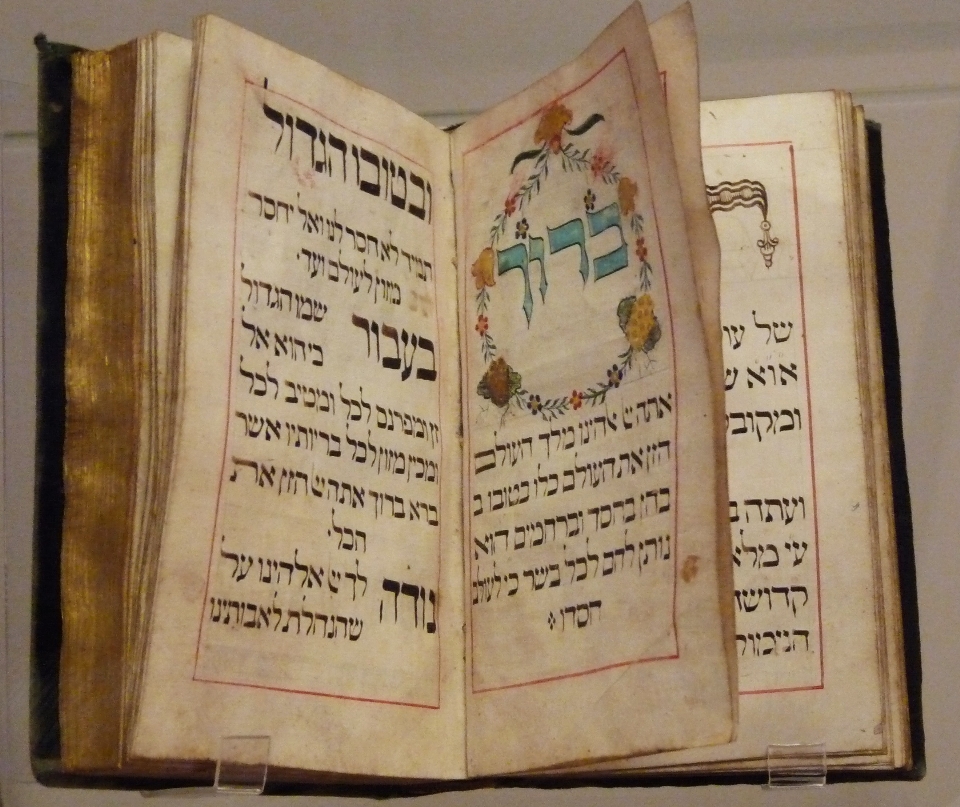 של
אוא
ועתה
ברוך
אתה יי אלהינו מלך העולם
הזן את העולם כלו בטובו ב
בחן בחסד וברחמים הוא
נותן לחם לכל בשר כי לעולם
חסדו
ובטובו הגדול
תמיד לא חסר לנו ואל יחסר
מזון לעולם ועד·
בעבור שמו הגדול
כיהוא אל
זן ומפרנס לכל ומטיב לכל
ומכין מזון לכל בריותיו אשר
ברא ברוך אתה יי הזן את
הכל·
נודה לך יי אלהינו על
שהנחלת לאבותינו